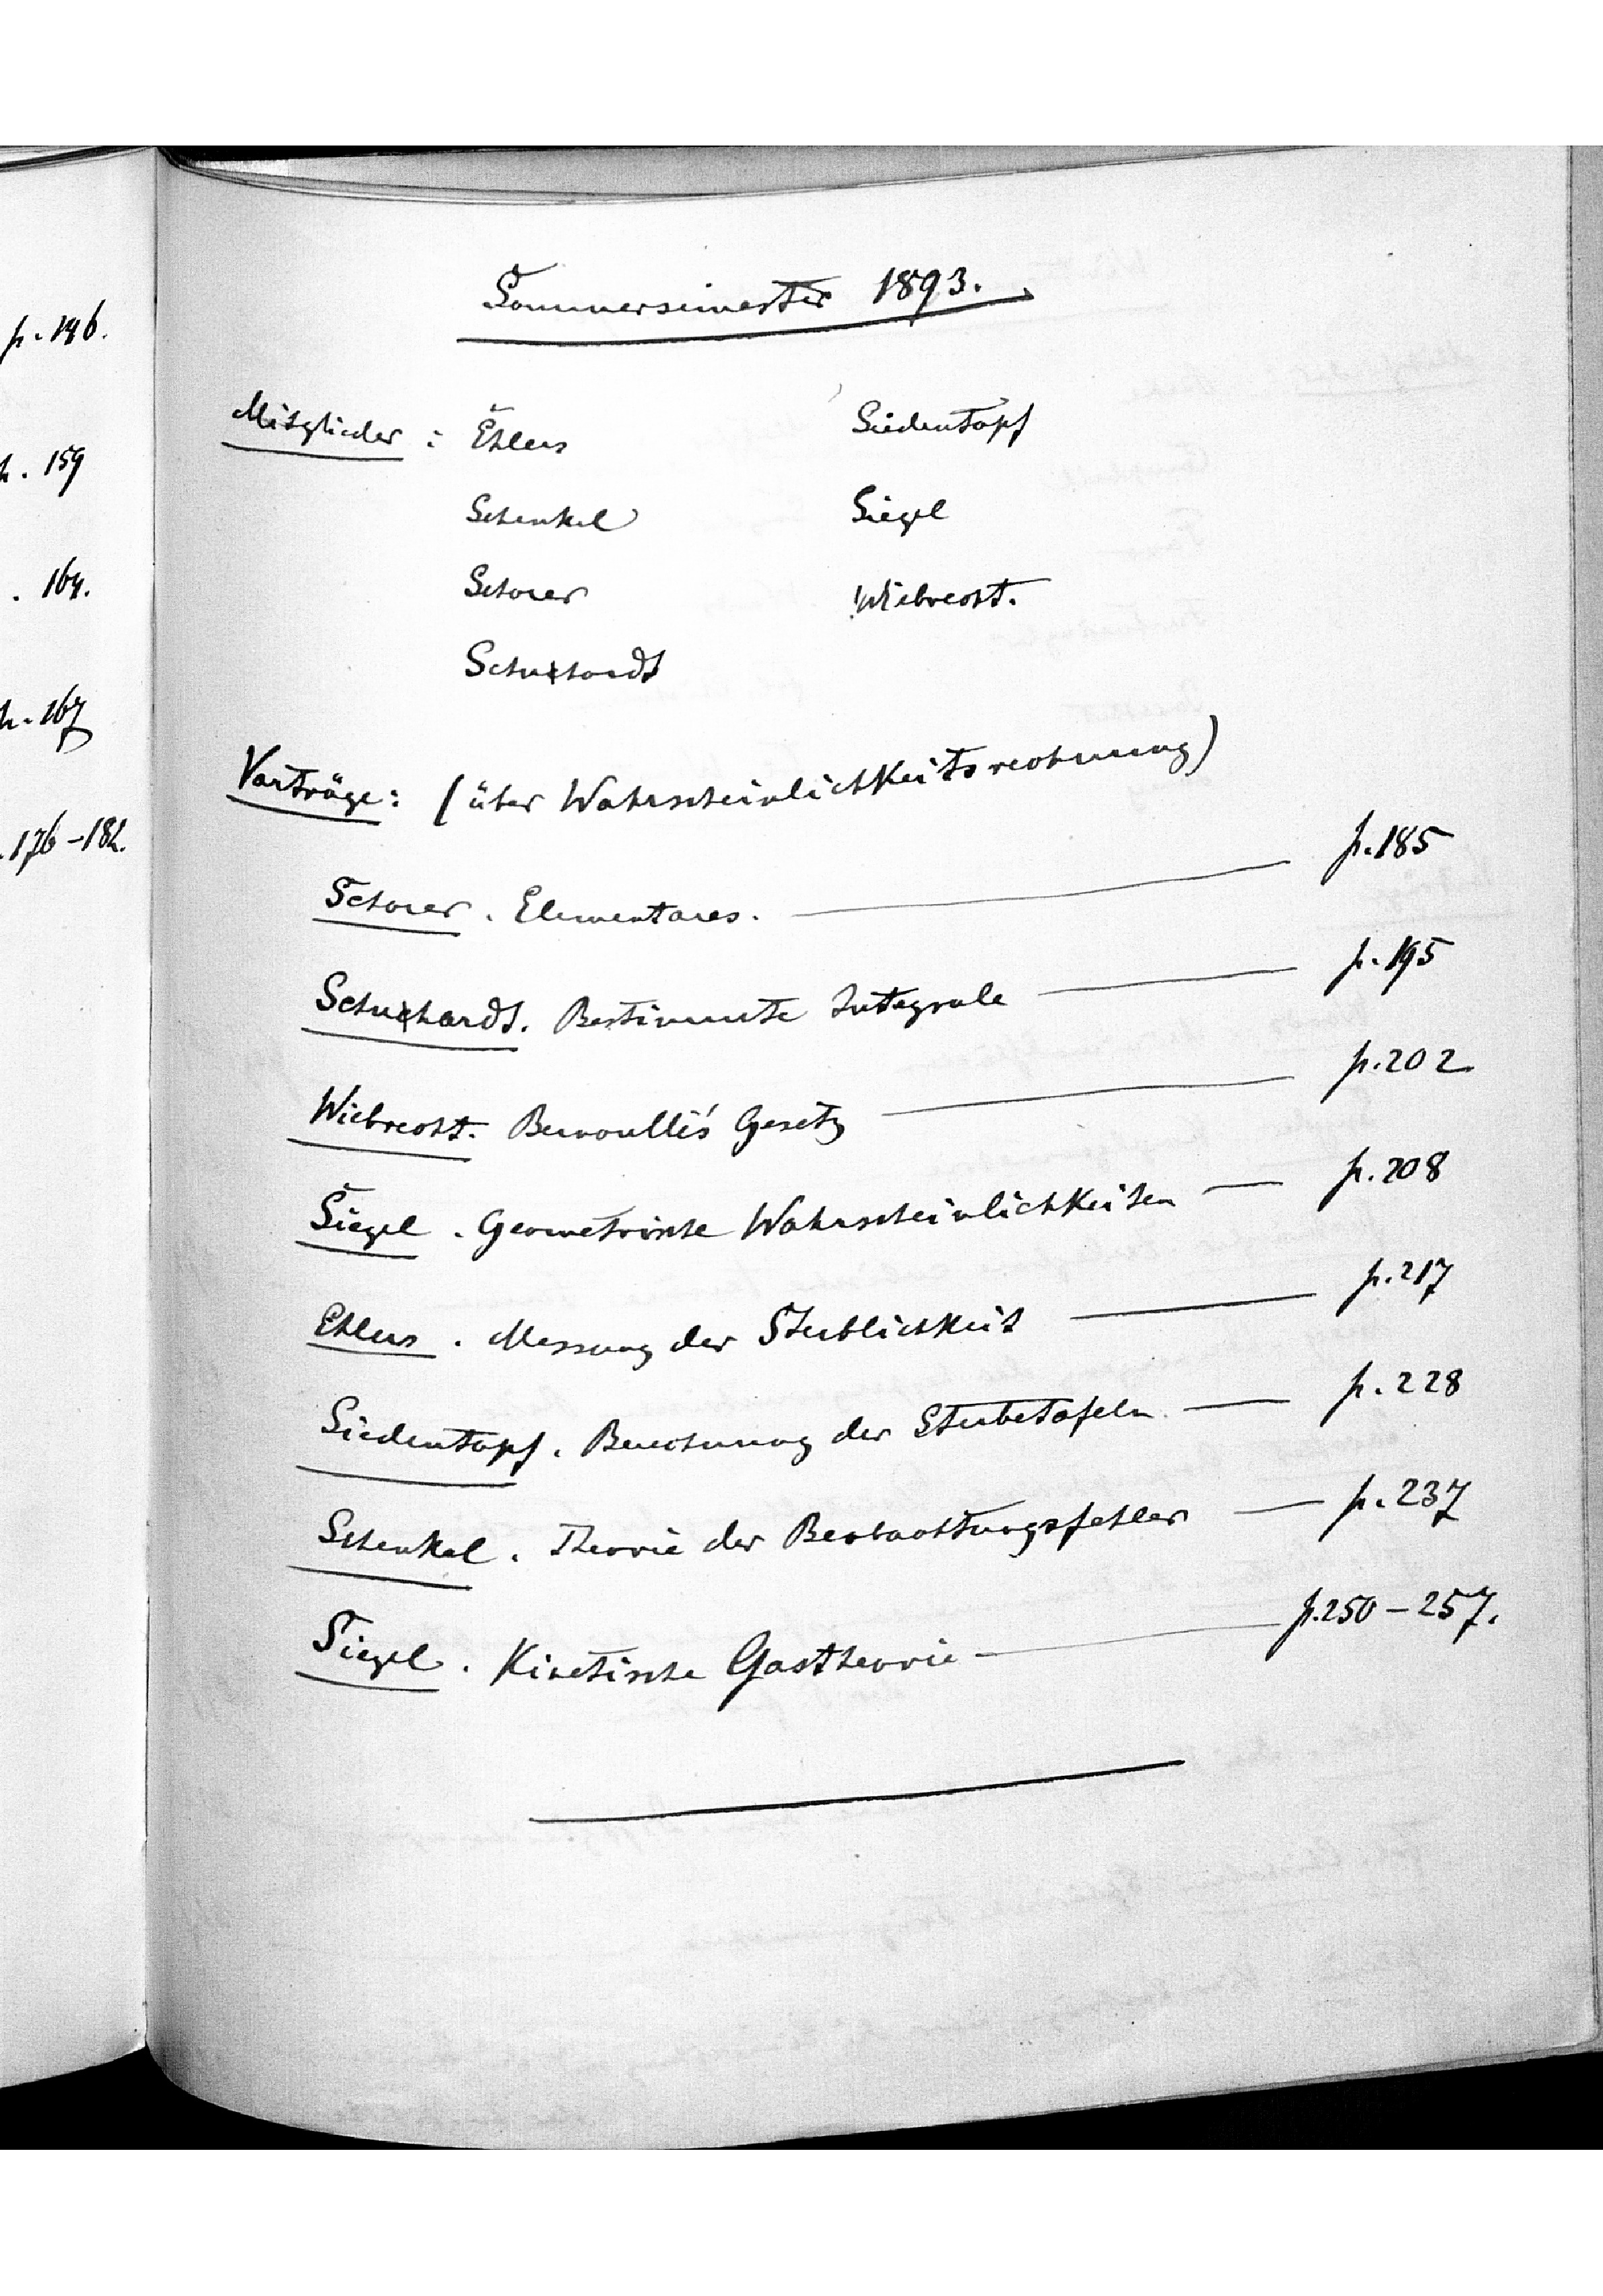 p. 146.
p. 159
. 164.
p. 167
. 176-182.
Sommersemester 1893.
Mitglieder: Ehlers Siedentopf
Schenkel Siegel
Schorer Wiebrecht.
Schuchardt
Vorträge: (über Wahrscheinlichkeitsrechnung)
Schorer. Elementares. — p. 185
Schuchardt. Bestimmte Integrale — p. 195
Wiebrecht. Bernoulli's Gesetz — p. 202
Siegel. Geometrische Wahrscheinlichkeiten — p. 208
Ehlers. Messung der Sterblichkeit — p. 217
Siedentopf. Berechnung der Sterbetafeln — p. 228
Schenkel. Theorie der Beobachtungsfehler — p. 237
Siegel. Kinetische Gastheorie — p. 250-257.